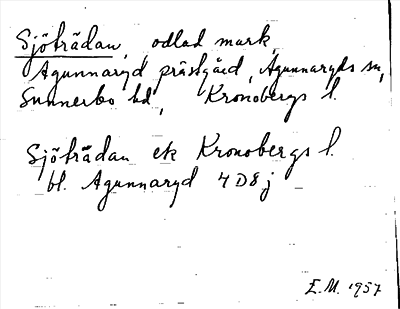 Sjöträdan, odlad mark,
Agunnaryd prästgård, Agunnaryds sn,
Sunnerbo hd, Kronobergs l.
Sjöträdan ek Kronobergs l.
bl. Agunnaryd 4D8j
E.M. 1957